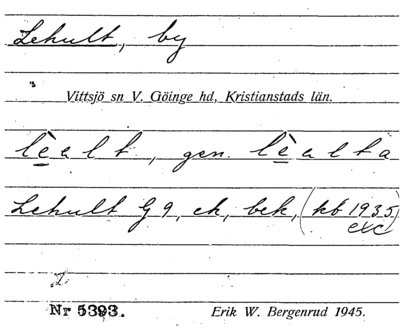 Lehult, by
Vittsjö sn V. Göinge hd, Kristianstads län.
lèalt, gen. lèalta
Lehult G 9, ek, bek, (kb 1935)
exc
L.
Nr 5393.
Erik W. Bergenrud 1945.